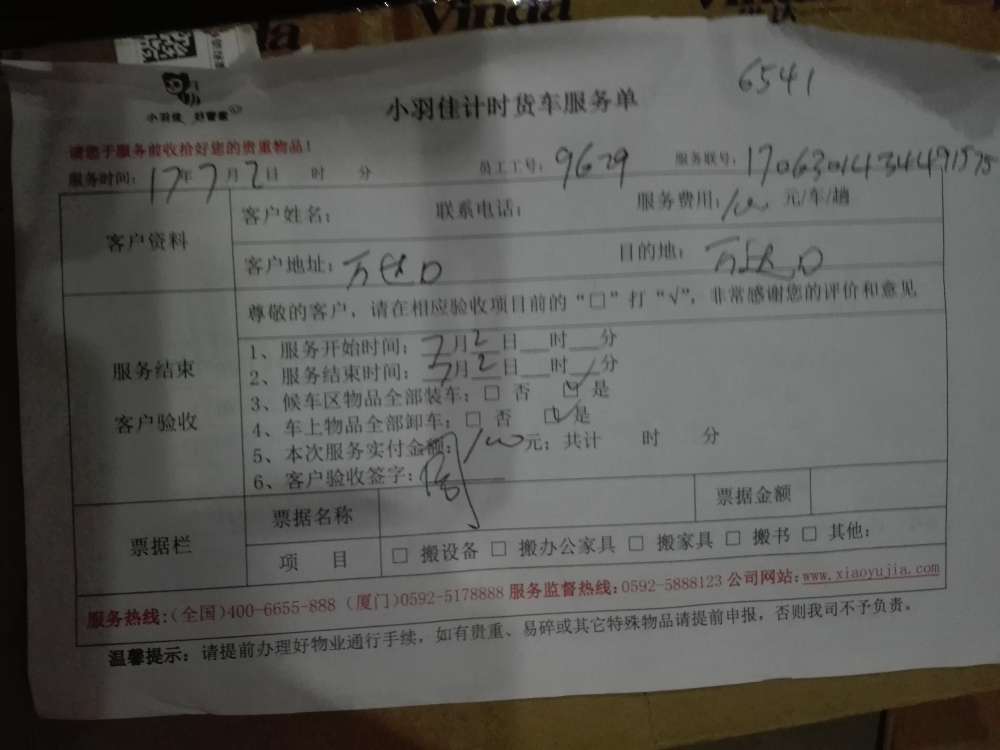 Vinda
小羽佳 好管家
小羽佳计时货车服务单
6541
请您于服务前收拾好您的贵重物品！
服务时间：17年7月2日 时 分 员工工号：9629 服务联号：
客户资料
客户姓名： 联系电话： 服务费用：100 元/车/趟
客户地址：万达口 目的地：万达口
服务结束
客户验收
尊敬的客户，请在相应验收项目前的“□”打“√”，非常感谢您的评价和意见
1、服务开始时间：7月2日__时__分
2、服务结束时间：7月2日__时__分
3、候车区物品全部装车：□ 否 □ 是
4、车上物品全部卸车：□ 否 □ 是
5、本次服务实付金额：100元；共计 时 分
6、客户验收签字：
票据栏
票据名称 票据金额
项 目 □ 搬设备 □ 搬办公家具 □ 搬家具 □ 搬书 □ 其他：
服务热线:（全国）400-6655-888（厦门）0592-5178888 服务监督热线:0592-5888123 公司网站:www.xiaoyujia.com
温馨提示：请提前办理好物业通行手续，如有贵重、易碎或其它特殊物品请提前申报，否则我司不予负责。